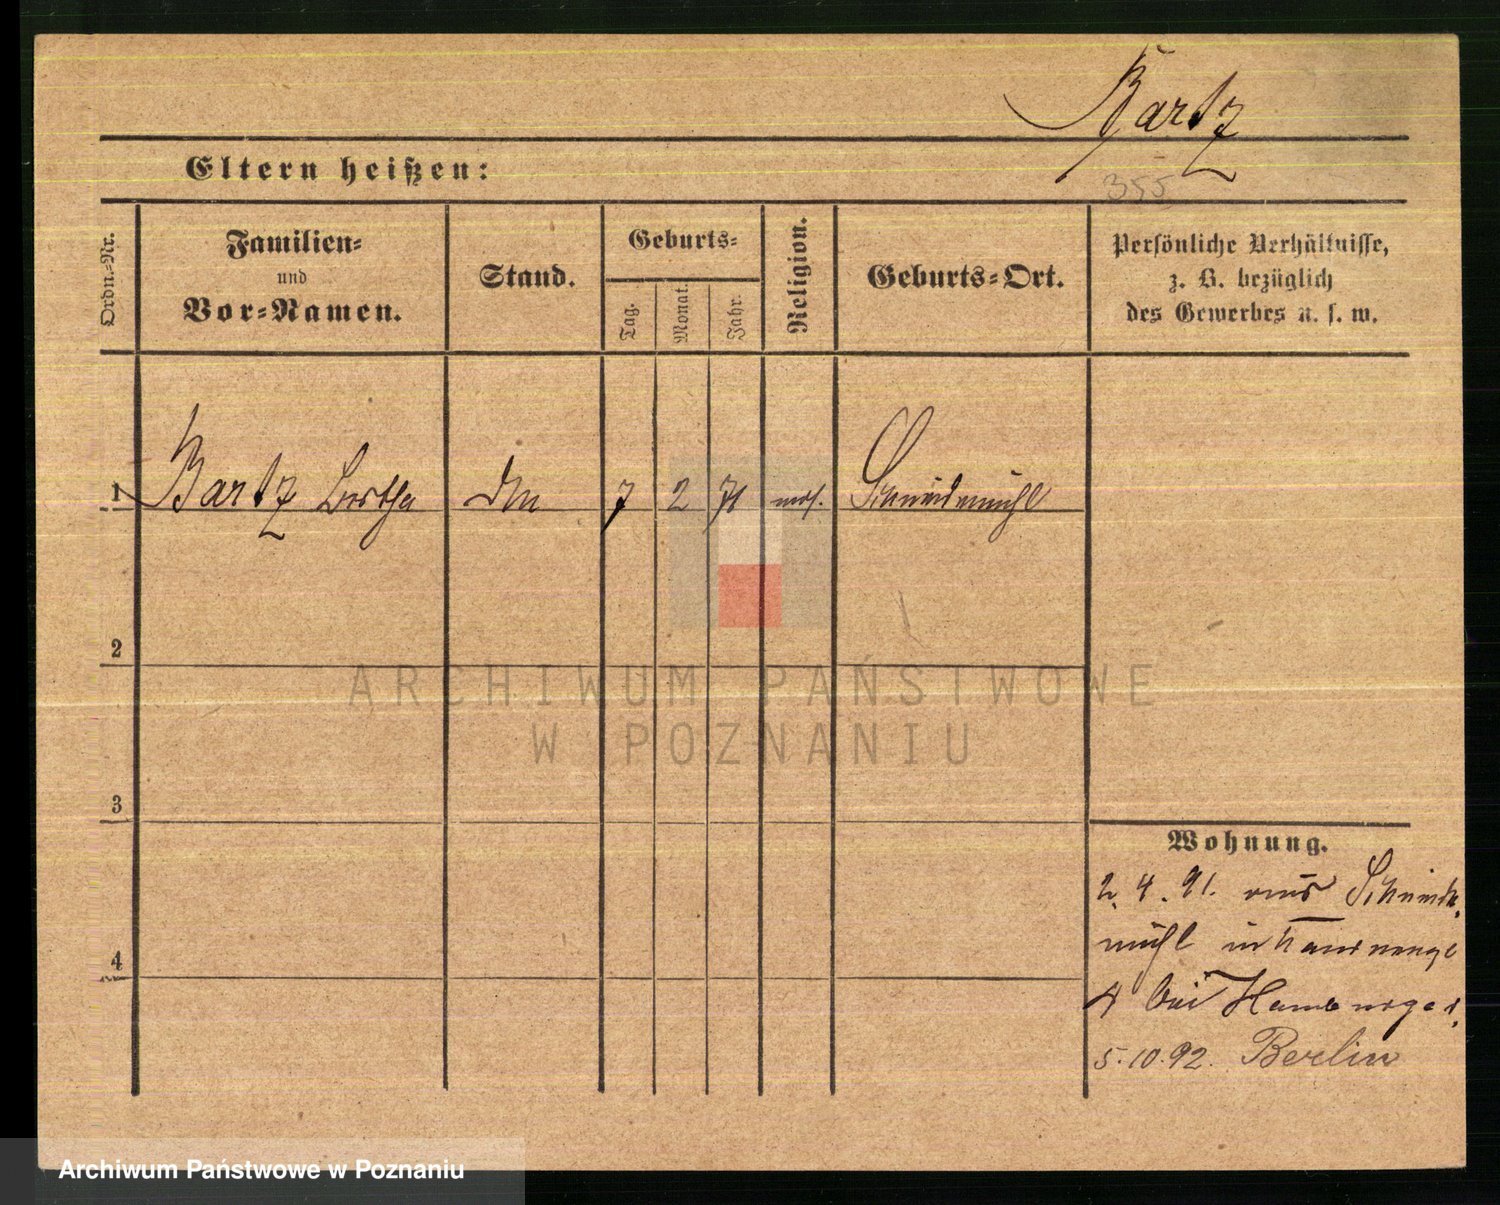 Bartz
Eltern heißen:
355
Ordn.-Nr.
Familien-
und
Vor-Namen.
Stand.
Geburts-
Tag.
Monat.
Jahr.
Religion.
Geburts-Ort.
Persönliche Verhältnisse,
z. B. bezüglich
des Gewerbes u. s. w.
1 Bartz Bertha 7 2 71 mos. Schneidemühl
2
3
4
Wohnung.
2. 4. 91. aus Schneide-
mühl in
4 bei Hamburger.
5.10.92. Berlin
ARCHIWUM PAŃSTWOWE
W POZNANIU
Archiwum Państwowe w Poznaniu